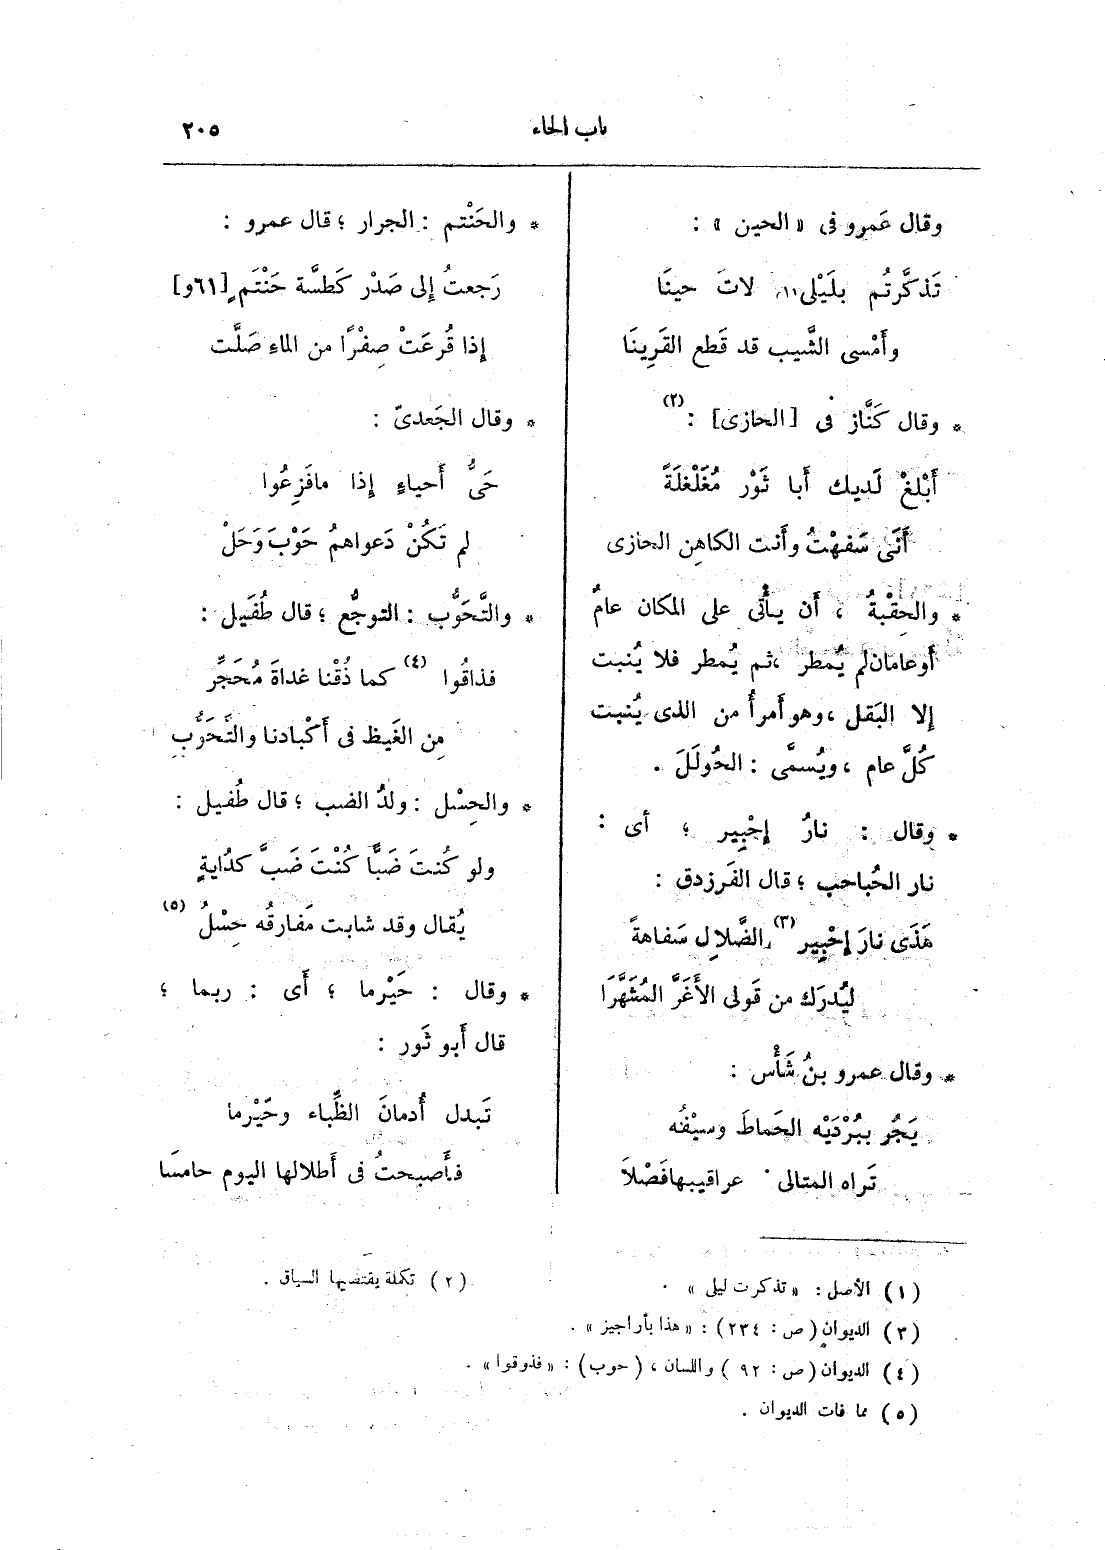 باب الحاء
٢٠٥
وقال عَمرو فى «الحين» :
تَذكَّرتُم بلَيْلى(١) لاتَ حينَا
وأَمْسى الشَّيب قد قَطع القَرِينَا
* وقال كَنَّاز فى [الحازى] :(٢)
أَبْلغْ لَديك أَبا ثَوْر مُغَلْغلَةً
أَنَّى سَفهْتُ وأَنت الكاهن الحازى
* والحِقْبةُ ، أَن يأْتى على المكان عامٌ
أَو عامان لم يُمطر ، ثم يُمطر فلا يُنبت
إلا البَقل ، وهو أَمرأُ من الذى يُنبت
كُلَّ عام ، ويُسمَّى : الحُولَلَ .
* وقال : نارُ إحْبِير ؛ أى :
نار الحُباحب ؛ قال الفَرزدق :
هَذَى نارَ إحْبِير(٣) الضَّلالِ سَفاهةً
ليُدرَك من قَولى الأَغَرَّ المُشَهَّرَا
* وقال عمرو بنُ شَأْس :
يَجُر ببُرْدَيْه الحَماطَ وسيْفُه
تَراه المتالى عراقيبها فَصْلاَ
* والحَنْتم : الجرار ؛ قال عمرو :
رَجعتُ إلى صَدْر كَطسَّة حَنْتَمٍ [٦١و]
إذا قُرعَتْ صِفْرًا من الماءِ صَلَّت
* وقال الجَعدىّ :
حَىُّ أَحياءٍ إذا مافَزِعُوا
لم تَكُنْ دَعواهمُ حَوْبَ وَحَلْ
* والتَّحَوُّب : التوجُّع ؛ قال طُفَيل :
فذاقُوا (٤) كما ذُقْنا غداةَ مُحَجَّرٍ
مِن الغَيظ فى أَكْبادنا والتَّحَوُّبِ
* والحِسْل : ولدُ الضب ؛ قال طُفيل :
ولو كُنتَ ضَبًّا كُنْتَ ضَبَّ كدُايةٍ
يُقال وقد شابت مَفارقُه حِسْلُ (٥)
* وقال : حَيْرما ؛ أَى : ربما ؛
قال أَبو ثَور :
تَبدل أُدمانَ الظِّباء وحَيْرما
فأَصبحتُ فى أَطلالها اليوم حامسَا
(١) الأصل : «تذكرت ليلى» .
(٢) تكملة يقتضيها السياق .
(٣) الديوان (ص : ٢٣٤) : «هذا بأراجيز» .
(٤) الديوان (ص : ٩٢) واللسان ، (حوب) : «فذوقوا» .
(٥) مما فات الديوان .